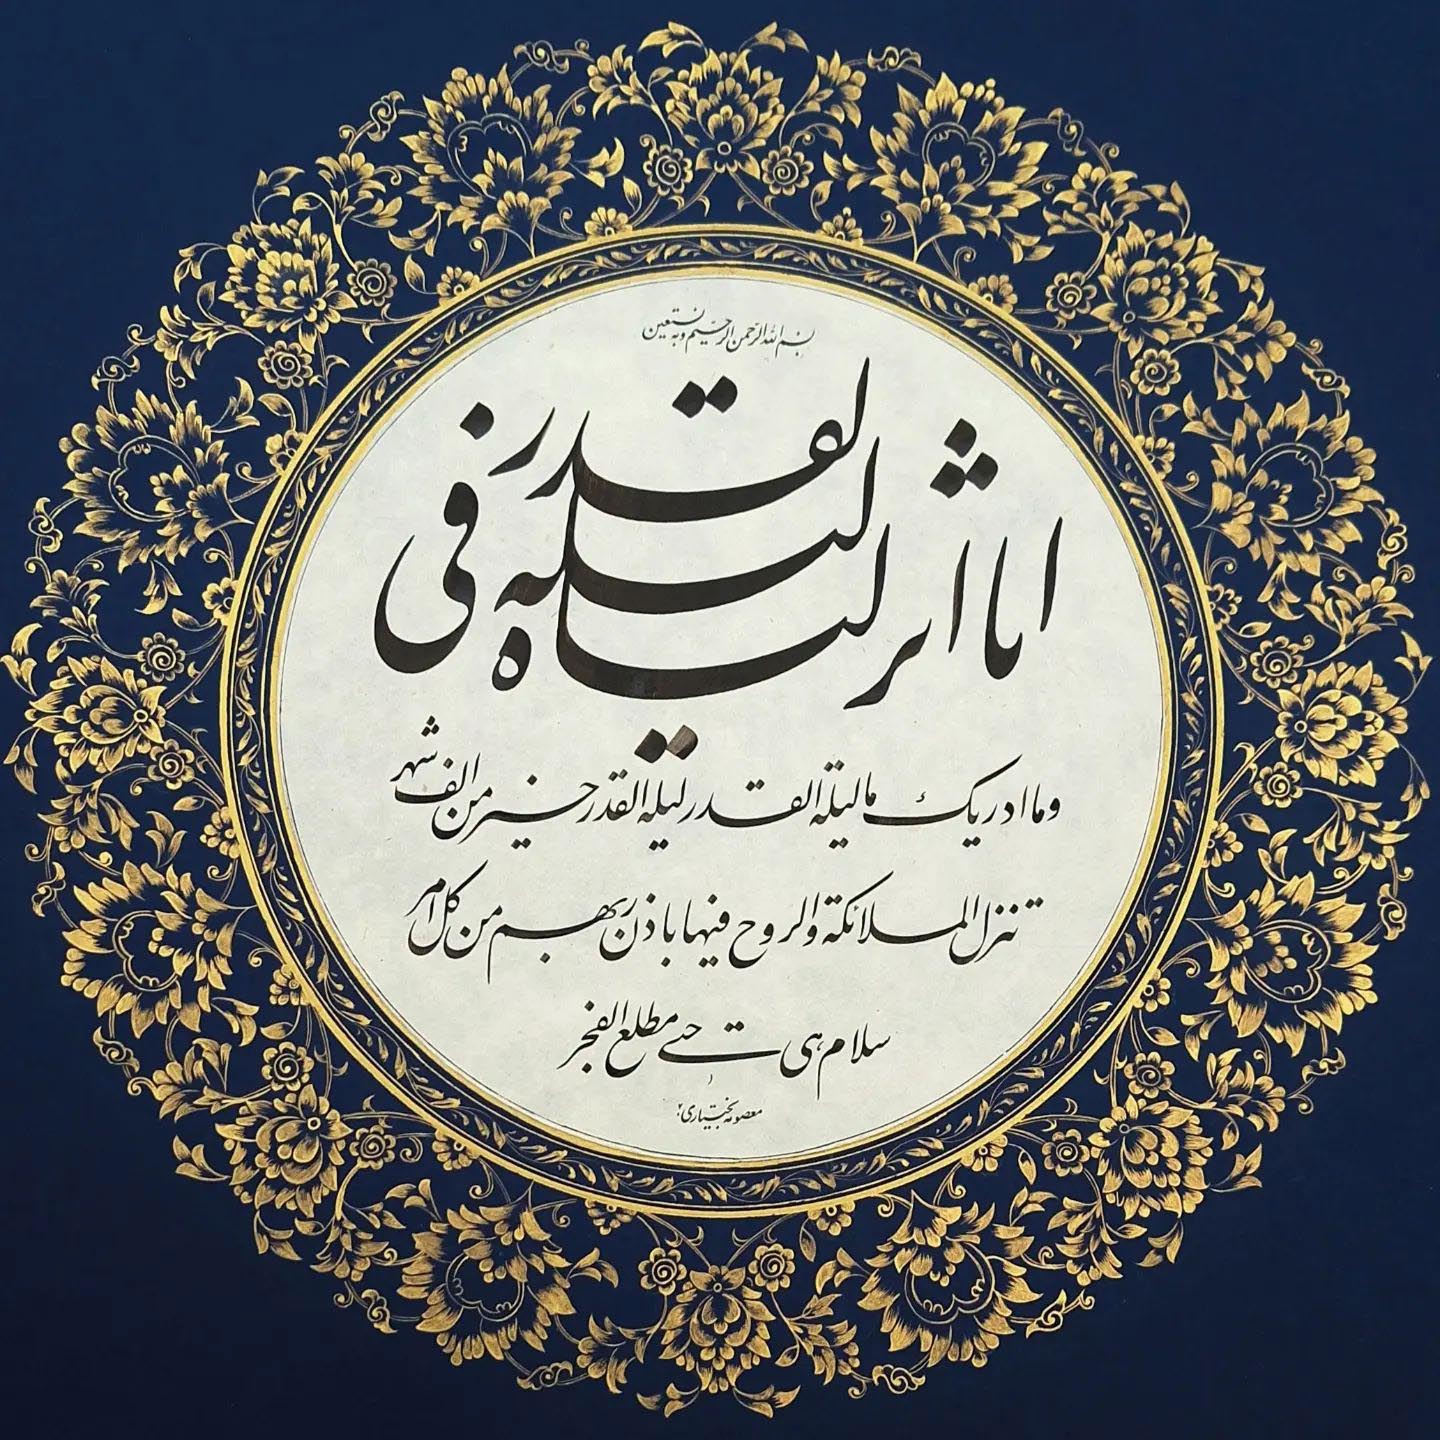 بسم الله الرّحمن الرّحیم و به نستعین
انا انزلناه فی لیله القدر
و ما ادریک ما لیلة القدر لیلة القدر خیر من الف شهر
تنزل الملائکة والروح فیها باذن ربهم من کل امر
سلام هی حتی مطلع الفجر
معصومه بختیاری